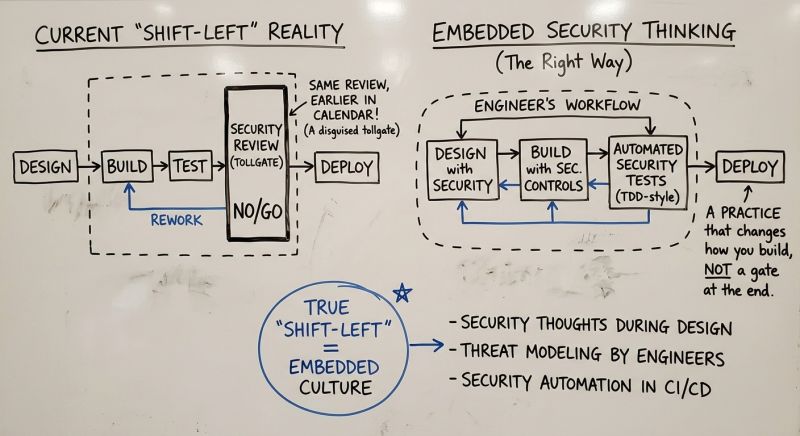 CURRENT "SHIFT-LEFT" REALITY
DESIGN
BUILD
TEST
SECURITY
REVIEW
(TOLLGATE)
NO/GO
REWORK
SAME REVIEW,
EARLIER IN
CALENDAR!
(A disguised tollgate)
DEPLOY
EMBEDDED SECURITY THINKING
(The Right Way)
ENGINEER'S WORKFLOW
DESIGN
with
SECURITY
BUILD
with SEC.
CONTROLS
AUTOMATED
SECURITY
TESTS
(TDD-style)
DEPLOY
A PRACTICE
that changes
how you build,
NOT a gate
at the end.
TRUE
"SHIFT-LEFT"
=
EMBEDDED
CULTURE
- SECURITY THOUGHTS DURING DESIGN
- THREAT MODELING BY ENGINEERS
- SECURITY AUTOMATION IN CI/CD